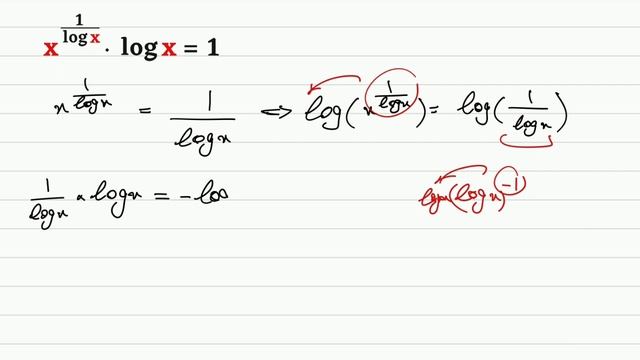 x^{\frac{1}{\log x}} · log x = 1
x^{\frac{1}{\log x}} = \frac{1}{\log x} ⇔ log(x^{\frac{1}{\log x}}) = log(\frac{1}{\log x})
\frac{1}{\log x} × log x = -log
(log x)^{-1}